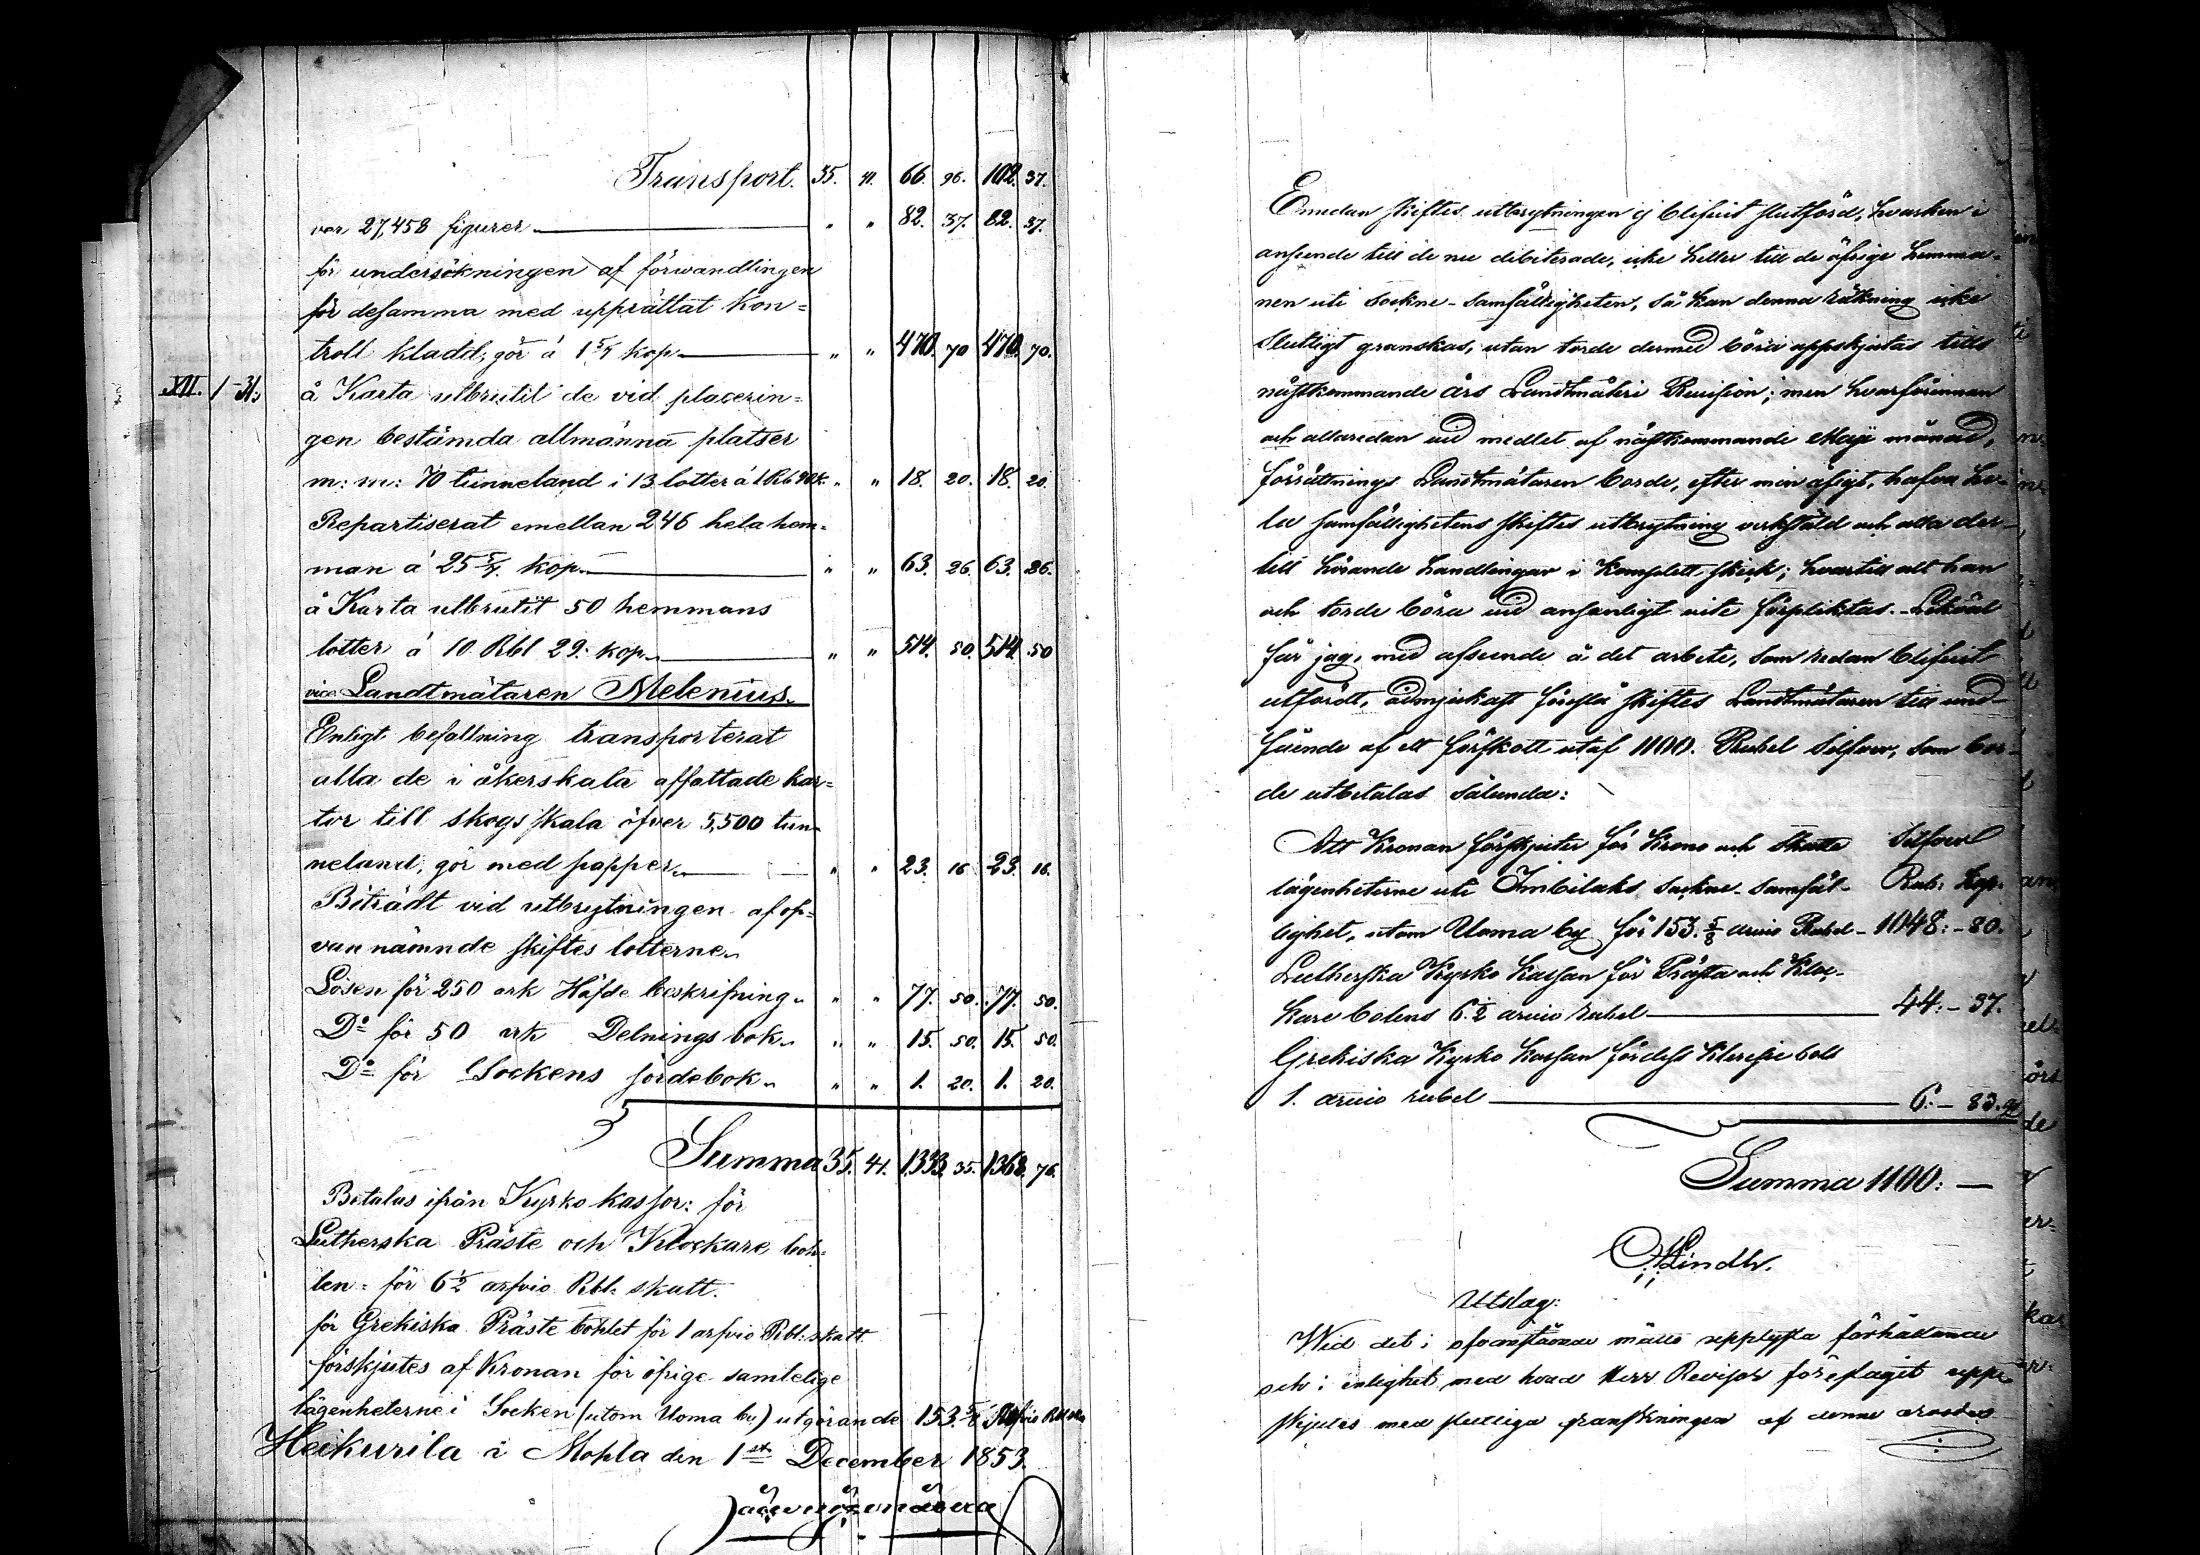 Transport. 35. 41. 66. 96. 102. 37.
var 27,458 figurer " " 82. 37. 82. 37.
för undersökningen af förwandlingen
för desamma med upprättat kon=
troll kladd, gör á 1 5/7 kop. " " 470. 70 470. 70.
XII. 1-31. å Karta utbrutit de vid placerin=
gen bestämda allmänna platser
m: m: 70 tunneland i 13 lotter á 1 Rbl 40 k. " " 18. 20. 18. 20.
Repartiserat emellan 246 hela hem=
man á 25 5/7. kop. " " 63. 26. 63. 26.
å Karta utbrutit 50 hemmans
lotter á 10 Rbl 29. kop. " " 514. 50. 514. 50
vice Landtmätaren Melenius.
Enligt befallning transporterat
alla de i åkerskala affattade kar=
tor till skogs skala öfver 5,500 tun-
neland, gör med papper " " 23. 16 23. 16.
Biträdt vid utbrytningen af of=
van nämnde skiftes lotterne.
Lösen för 250 ark Häfde beskrifning " " 77. 50. 77. 50.
Do för 50 ark Delnings bok. " " 15. 50. 15. 50.
Do för Sockens jordebok " " 1. 20. 1. 20.
Summa 35. 41. 1333. 35. 1368. 76.
Betalas ifrån Kyrko kassor: för
Lutherska Präste och Klockare boh=
len = för 6 1/2 arfvio Rbl. skatt.
för Grekiska Präste bohlet för 1 arfvio Rbl: skatt
förskjutes af Kronan för öfrige samtelige
lägenheterne i Socken (utom Uoma by) utgörande 153. 5/8 Arfvio Rbl
Heikurila i Mohla den 1st December 1853.
Emedan skiftes utbrytningen ej blifvit slutförd, hvarken i
anseende till de nu debiterade, icke heller till de öfrige hemma-
nen uti Sockne-samfälligheten, så kan denna räkning icke
slutligt granskas, utan torde dermed böra uppskjutas till
nästkommande års Landtmäteri Revision; men hvarförinnan
och allaredan vid medlet af nästkommande Maji månad,
förrättnings Landtmätaren borde, efter min åsigt, hafva he-
la samfällighetens skiftes utbrytning verkstäld och alla der-
till hörande handlingar i komplett skick; hvartill att han
och torde böra vid ansenligt vite förpliktas. Likväl
får jag, med afseende å det arbete, som redan blifvit
utfördt, ödmjukast föreslå skiftes Landtmätaren till und-
fående af ett förskott utaf 1100. Rubel Silfver, som bor-
de utbetalas sålunda:
Att Kronan förskjuter för Krono och Skatte Silfver
lägenheterne uti Imbilaks sockne-samfäl- Rub: Kop.
lighet, utom Uoma by för 153. 5/8 arvio Rubel - 1048: - 80.
Lutherska Kyrko Kassan för Prästa och Kloc-
kare bolens 6. 1/2 arvio rubel 44: - 37.
Grekiska Kyrko Kassan för dess Kleresie bol
1. arvio rubel 6: - 83.
Summa 1100: —
Lindh.
Utslag:
Wid det i ofvanstående måtto upplysta förhållande
och i enlighet med hvad Herr Revisor föreslagit upp-
skjutes med slutliga granskningen af denne